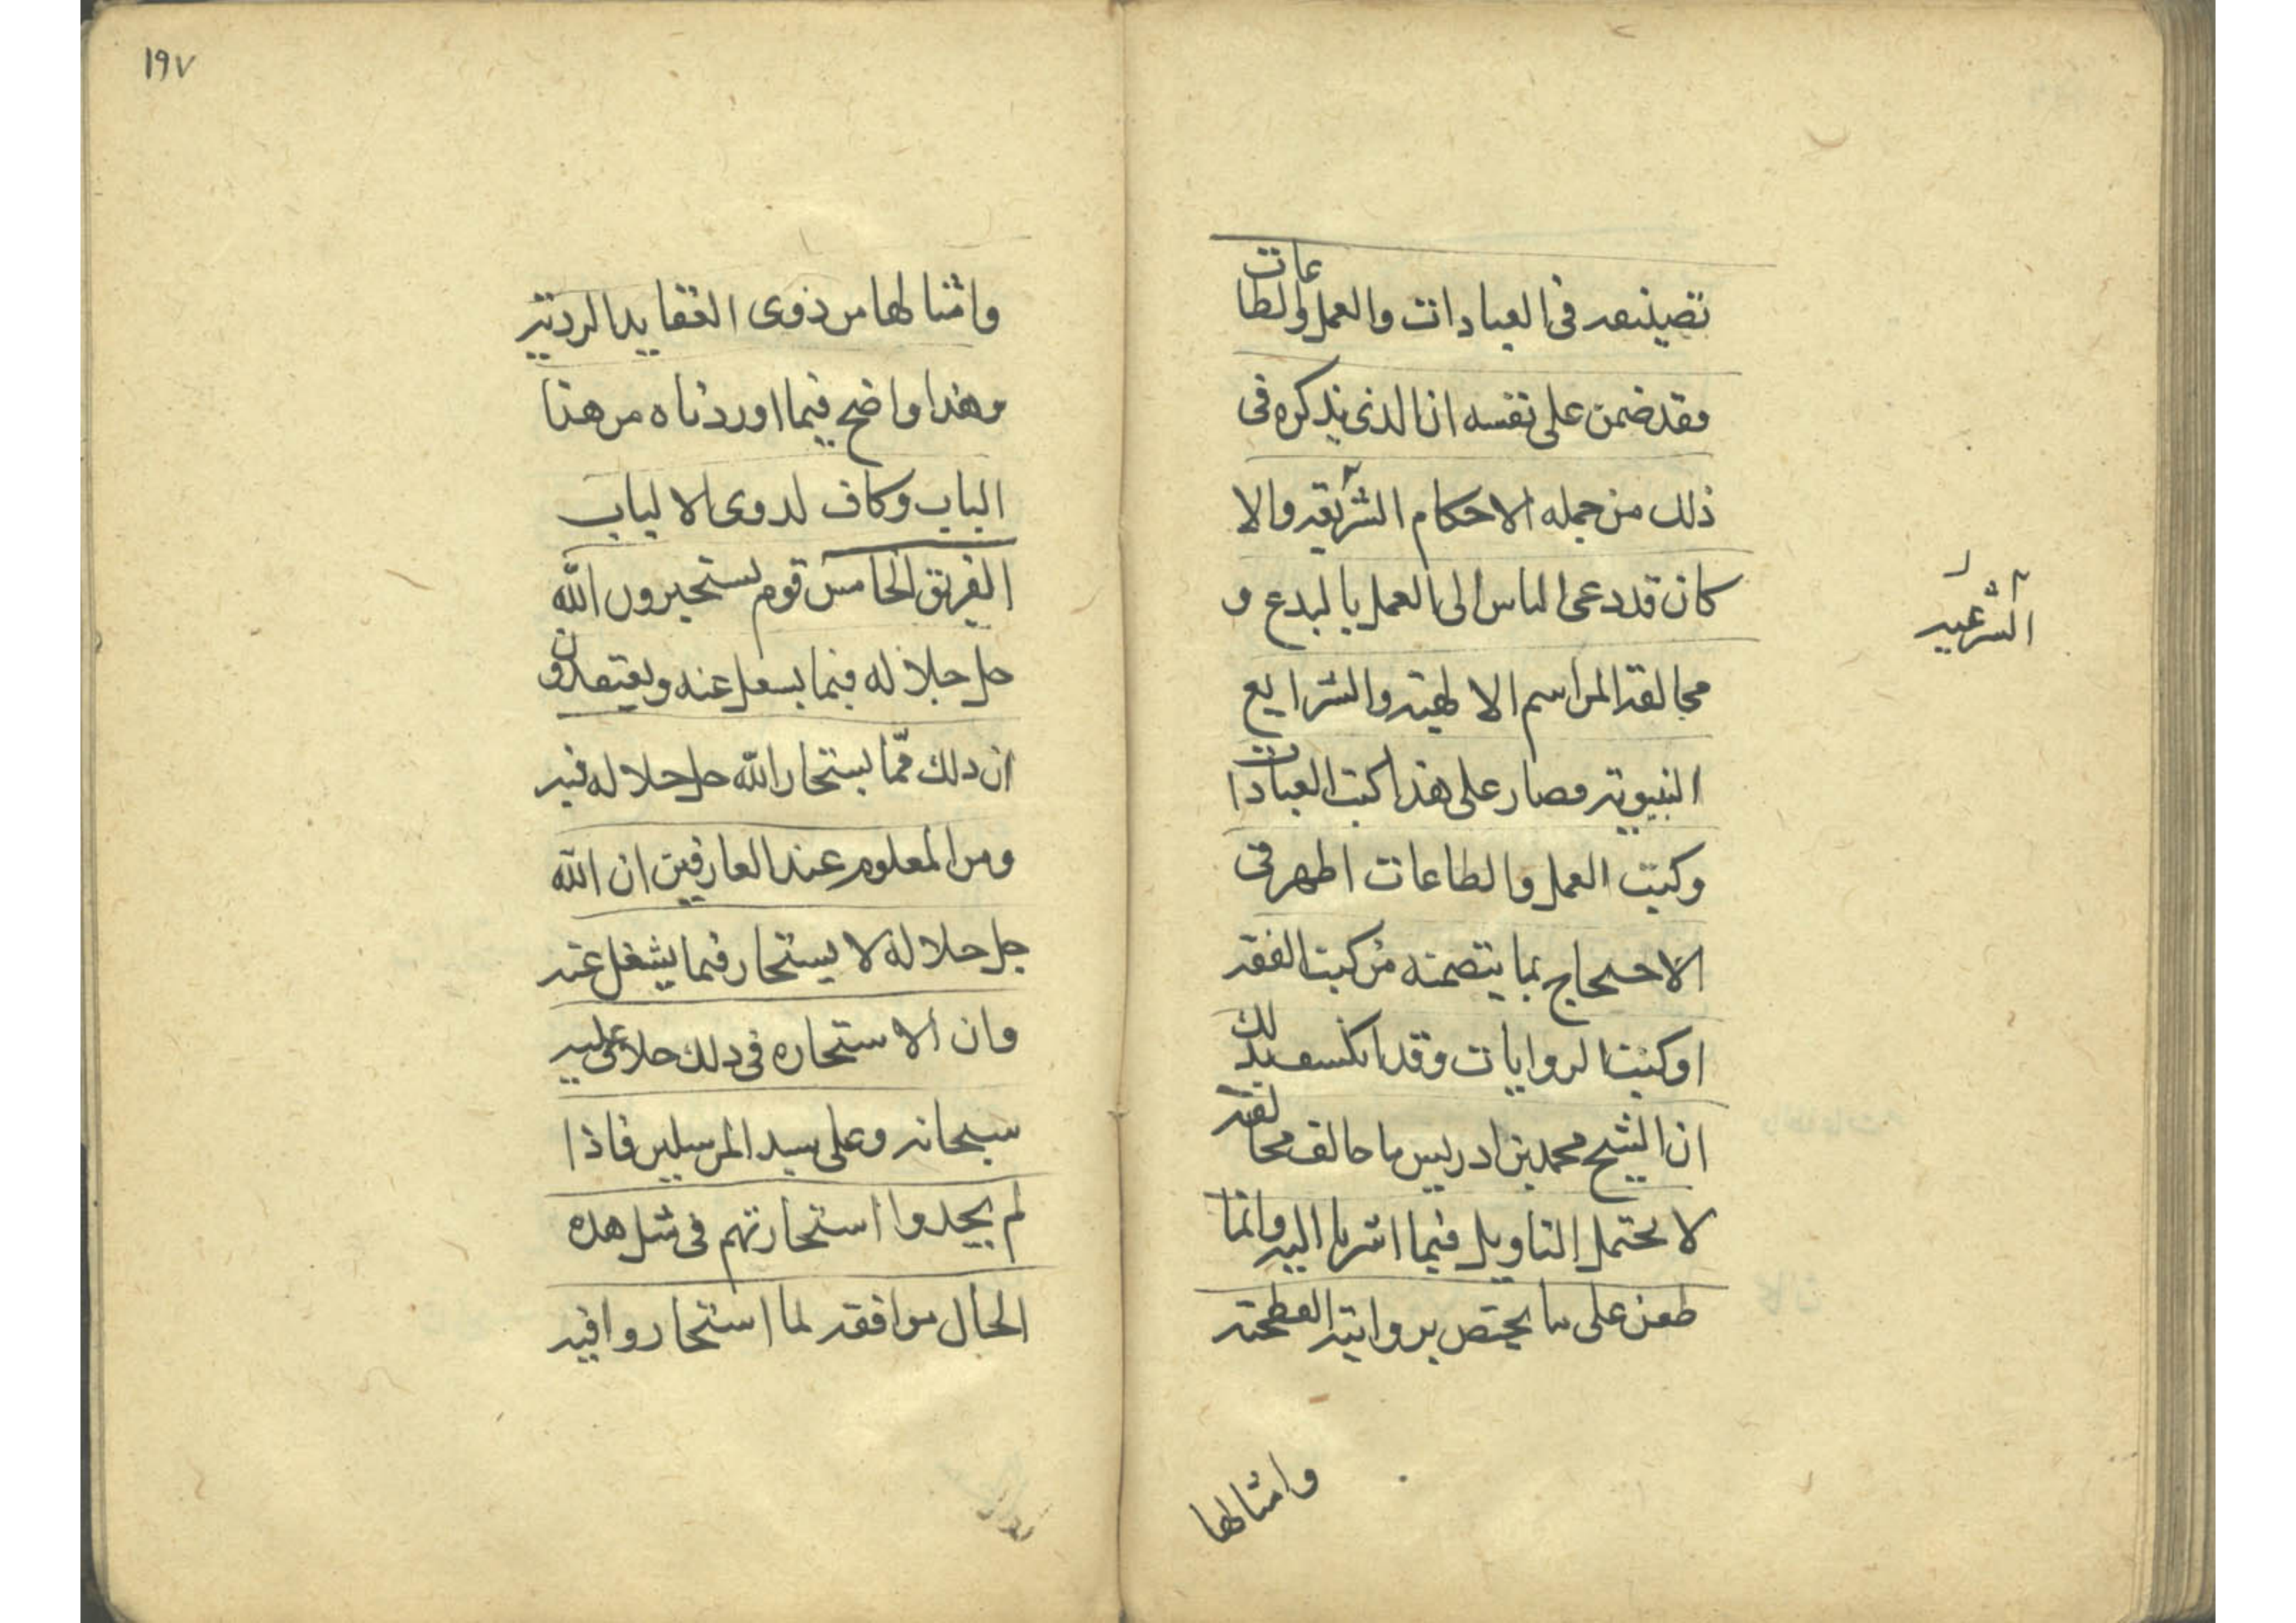 تصينفه فى العبادات والعمل والطاعات
فقد ضمن على نفسه ان الذى يذكره فى
ذلك من جمله الاحكام الشريفه والا
الشرعيه
كان قد دعى الناس الى العمل بالبدع و
مخالفة المراسم الالهية والشرايع
النبيوية فصار على هذا كتب العبادات
وكتب العمل والطاعات اظهر فى
الاحتجاج بما يتضمنه من كتب الفقه
او كتب الروايات وقد انكشف بذلك
ان الشيخ محمد بن ادريس ما خالف مخالفة
لا تحتمل التاويل فيما اشرنا اليه وانما
طعن على ما يختص بروايته الفطحية
وامثالها
١٩٧
وامثالها من ذوى العقايد الردية
وهذا واضح فيما اوردناه من هذا
الباب وكاف لذوى الالباب
الفريق الخامس قوم يستخيرون الله
جل جلاله فيما يشغل عنه ويعتقدون
ان ذلك مما يستخار الله جل جلاله فيه
ومن المعلوم عند العارفين ان الله
جل جلاله لا يستخار فيما يشغل عنه
وان الاستخاره فى ذلك خلاف عليه
سبحانه وعلى سيد المرسلين فاذا
لم يجدوا استخارتهم فى مثل هذه
الحال موافقه لما استخاروا فيه